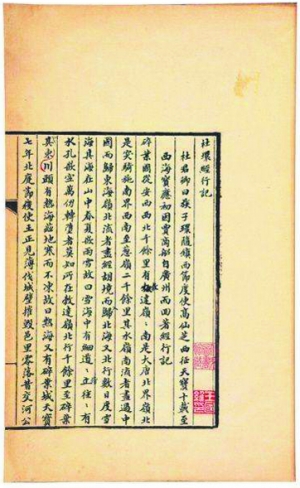 杜環經行記
杜君卿曰族子環隨鎮西節度使高仙芝西征天寶十載至
西海寶應初因賈商船自廣州而回著經行記
碎葉國從安西西北千餘里有達嶺、南是大唐北界嶺北
是突騎施南界西南至葱嶺二千餘里其水嶺南流者盡過中
國而歸東海嶺北流者盡經胡境而歸北海又北行數日度雪
海其海在山中春夏雨雪故曰雪海中有細道、往、有
水孔嵌空萬仞轉墮者莫知所在達嶺北行千餘里至碎葉
其東川頭有熱海茲地寒而不凍故曰熱海又有碎葉城天寶
七年北庭節度使王正見薄伐城壁摧毀邑里零落昔交河公